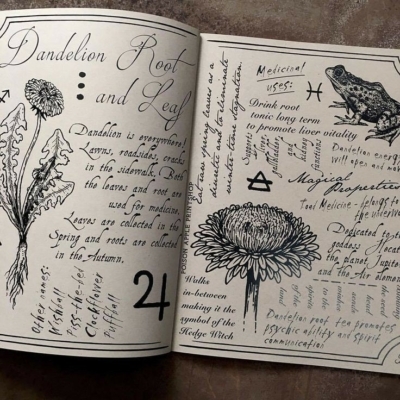 Dandelion Root
and Leaf
Dandelion is everywhere!
Lawns, roadsides, cracks
in the sidewalk. Both
the leaves and root are
used for medicine.
Leaves are collected in the
Spring and roots are collected
in the Autumn.
Other names:
Wishball
Piss-the-bed
Clockflower
Puffball
POISON APPLE PRINTSHOP
Eat raw spring leaves as a
diuretic and to eliminate
winter-time stagnation.
Medicinal
uses:
Drink root
tonic long term
to promote liver vitality
Supports
liver,
gallbladder
and
kidney
functions
Dandelion energy
will open and
Magical
Properties
Toad Medicine - belongs to
the
Dedicated to the
goddess Hecate
the planet Jupiter
and the Air element
Walks
in-between
making it the
symbol of the
Hedge Witch
Dandelion root tea promotes
psychic ability and spirit
communication